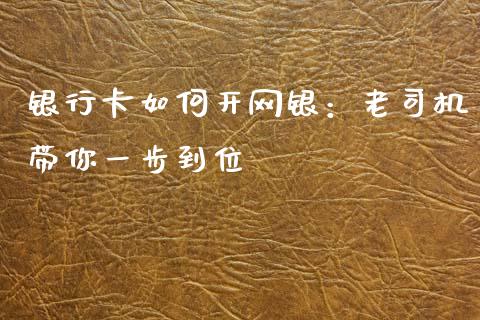 银行卡如何开网银：老司机
带你一步到位